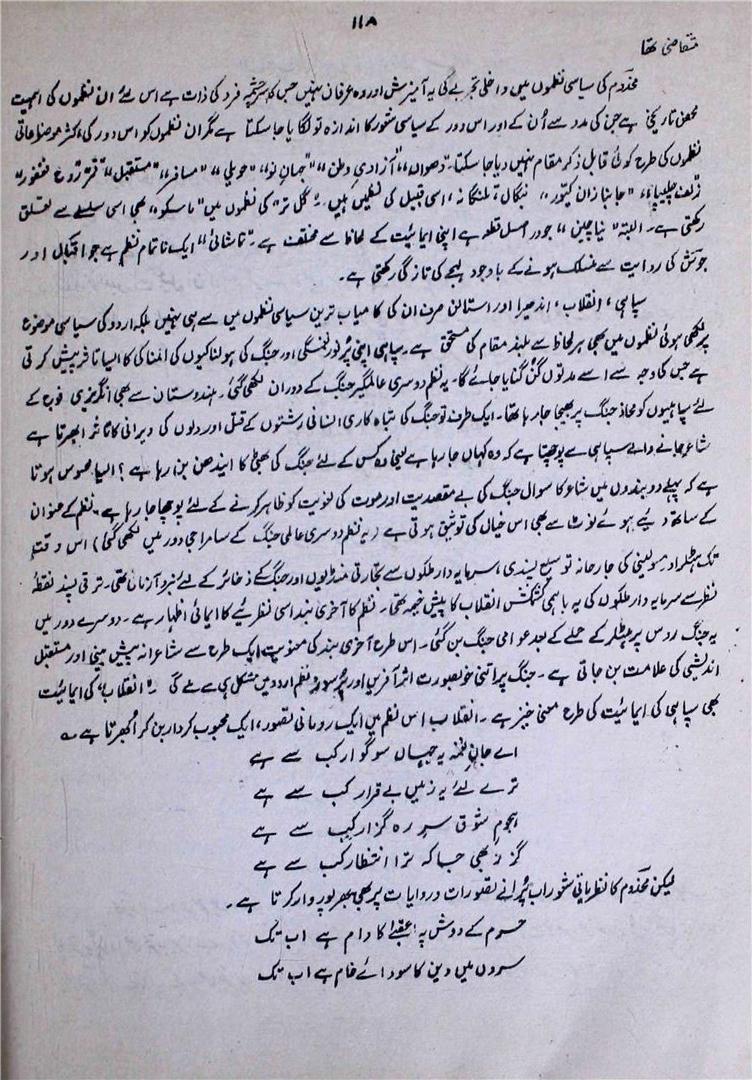 ۱۱۸
متقاضی تھا
مخدوم کی سیاسی نظموں میں داخلی تجربے کی یہ آمیزش اور وہ عرفان نہیں جس کا سرچشمہ فرد کی ذات ہے اس لئے ان نظموں کی اہمیت
محض تاریخی ہے جن کی مدد سے اُن کے اور اس دور کے سیاسی شعور کا اندازہ تو لگایا جا سکتا ہے مگر ان نظموں کو اس دور کی اکثر موضوعاتی
نظموں کی طرح کوئی قابلِ ذکر مقام نہیں دیا جا سکتا۔ "دھواں"، "آزادیِ وطن"، "جہانِ نو"، "حویلی"، "مسافر"، "مستقبل"
"زلفِ چلیپا"، "جانبازانِ کیور"، بنگال، تلنگانہ، اسی قبیل کی نظمیں ہیں۔ "گل تر" کی نظموں میں "ماسکو" بھی اسی سلسلے سے تعلق
رکھتی ہے۔ البتہ "نیا چین" جو در اصل قطعہ ہے اپنی ایمائیت کے لحاظ سے مختلف ہے۔ "تماشائی" ایک ناتمام نظم ہے جو اقبال اور
جوش کی روایت سے منسلک ہونے کے باوجود لہجے کی تازگی رکھتی ہے۔
سپاہی، انقلاب، اندھیرا اور استالن صرف ان کی کامیاب ترین سیاسی نظموں میں سے ہی نہیں بلکہ اردو کی سیاسی موضوع
پر لکھی ہوئی نظموں میں بھی ہر لحاظ سے بلند مقام کی مستحق ہے۔ سپاہی اپنی پُر سوز نغمگی اور جنگ کی ہولناکیوں کی المناکی کا ایسا تاثر پیش کرتی
ہے جس کی وجہ سے اسے مدتوں گُنگنایا جائے گا۔ یہ نظم دوسری عالمگیر جنگ کے دوران لکھی گئی۔ ہندوستان سے بھی انگریزی فوج کے
لئے سپاہیوں کو محاذِ جنگ پر بھیجا جا رہا تھا۔ ایک طرف تو جنگ کی تباہ کاری انسانی رشتوں کے قتل اور دلوں کی ویرانی کا تاثر ابھرتا ہے
شاعر جانے والے سپاہی سے پوچھتا ہے کہ وہ کہاں جا رہا ہے یعنی وہ کس کے لئے جنگ کی بھٹی کا ایندھن بن رہا ہے؟ ایسا محسوس ہوتا
ہے کہ پہلے دو بندوں میں شاعر کا سوال جنگ کی بے مقصدیت اور موت کی لغویت کو ظاہر کرنے کے لئے پوچھا جا رہا ہے۔ نظم کے عنوان
کے ساتھ دیئے ہوئے نوٹ سے بھی اس خیال کی توثیق ہوتی ہے (یہ نظم دوسری عالمی جنگ کے سامراجی دور میں لکھی گئی) اس وقت
تک ہٹلر اور مسولینی کی جارحانہ توسیع پسندی، سرمایہ دار ملکوں سے تجارتی منڈیوں اور جنگ کے ذخائر کے لئے نبرد آزما تھی۔ ترقی پسند نقطۂ
نظر سے سرمایہ دار ملکوں کی یہ باہمی کشمکش انقلاب کا پیش خیمہ تھی۔ نظم کا آخری بند اسی نظریئے کا ایمائی اظہار ہے۔ دوسرے دور میں
یہ جنگ روس پر ہٹلر کے حملے کے بعد عوامی جنگ بن گئی۔ اس طرح آخری بند کی معنویت ایک طرح سے شاعرانہ پیش بینی اور مستقبل
اندیشی کی علامت بن جاتی ہے۔ جنگ پر اتنی خوبصورت اثر آفریں اور پُر سوز نظم اردو میں مشکل ہی سے ملے گی۔ "انقلاب" کی ایمائیت
بھی سپاہی کی ایمائیت کی طرح معنی خیز ہے۔ انقلاب اس نظم میں ایک رومانی تصور، ایک محبوب کردار بن کر اُبھرتا ہے ؎
اے جانِ نغمہ یہ جہاں سوگوار کب سے ہے
ترے لئے یہ زمیں بے قرار کب سے ہے
ہجومِ شوق سرِ رہ گزار کب سے ہے
گزر بھی جا کہ ترا انتظار کب سے ہے
لیکن مخدوم کا نظریاتی شعور اب پُرانے تصورات و روایات پر بھی بھرپور وار کرتا ہے۔
حرم کے دوش پہ عقبیٰ کا دام ہے اب تک
سروں میں دین کا سودائے خام ہے اب تک